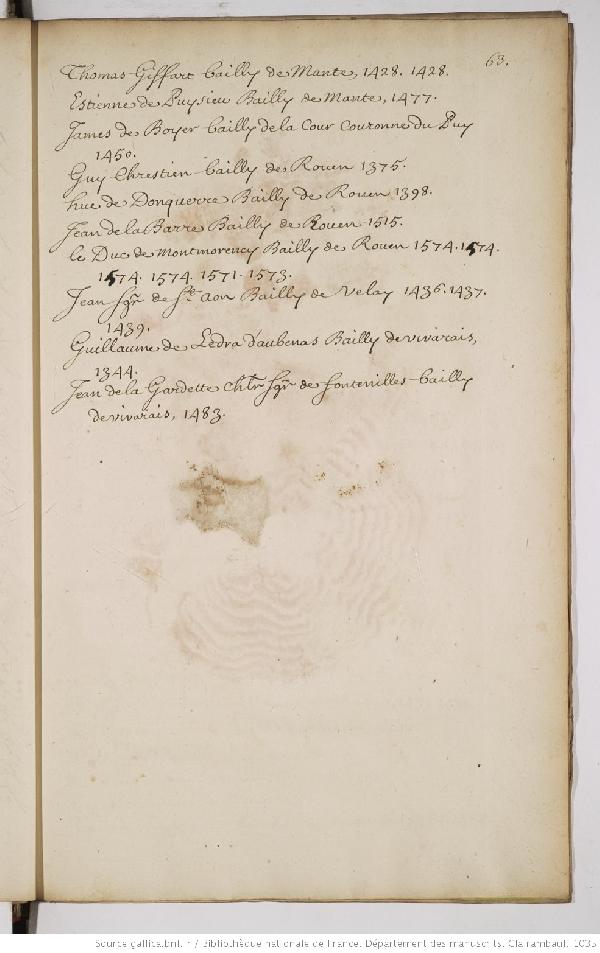 63.
Thomas Giffart bailly de Mante, 1428. 1428.
Estienne de Puysieu Bailly de Mante, 1477.
James de Boyer bailly de la Cour Couronne du Puy
1450.
Guy Chrestien bailly de Rouen 1375.
hue de Donquerre Bailly de Rouen 1398.
Jean de la Barre Bailly de Rouen 1515.
le Duc de Montmorency Bailly de Rouen 1574. 1574.
1574. 1574. 1571. 1573.
Jean Sgr de St. aon Bailly de Velay 1436. 1437.
1439.
Guillaume de Ledra d'aubenas Bailly de vivarais,
1344.
Jean de la Gardette Chlr Sgr de fontenilles bailly
de vivarais, 1483.
Source gallica.bnf.fr / Bibliothèque nationale de France. Département des manuscrits. Clairambault 1035